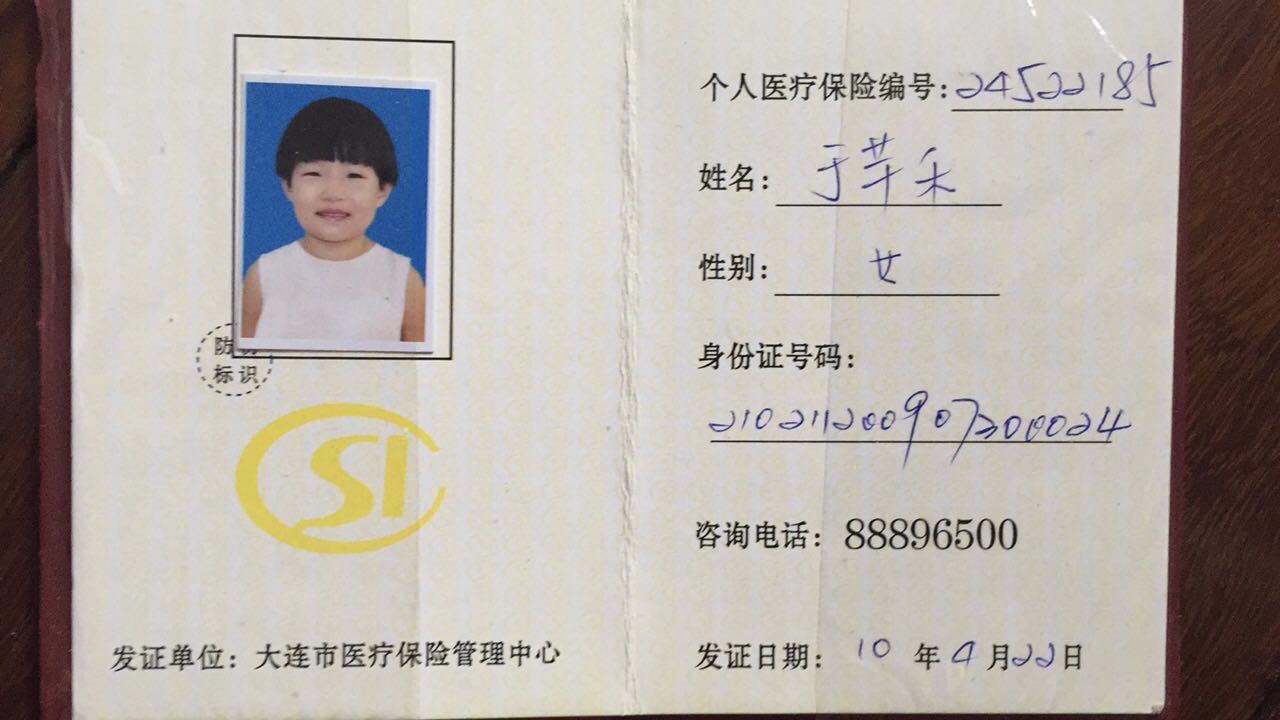 防伪
标识
SI
发证单位：大连市医疗保险管理中心
个人医疗保险编号：24522185
姓名：于芊禾
性别：女
身份证号码：
210211200907300024
咨询电话：88896500
发证日期：10年9月22日